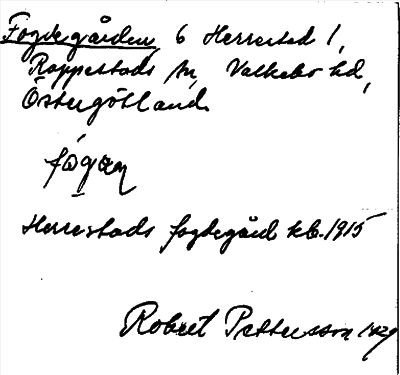 Fogdegården 6 Herrestad 1,
Rappestads sn, Valkebo hd,
Östergötland
Herrestads fogdegård kb. 1915
Robert Pettersson 1929